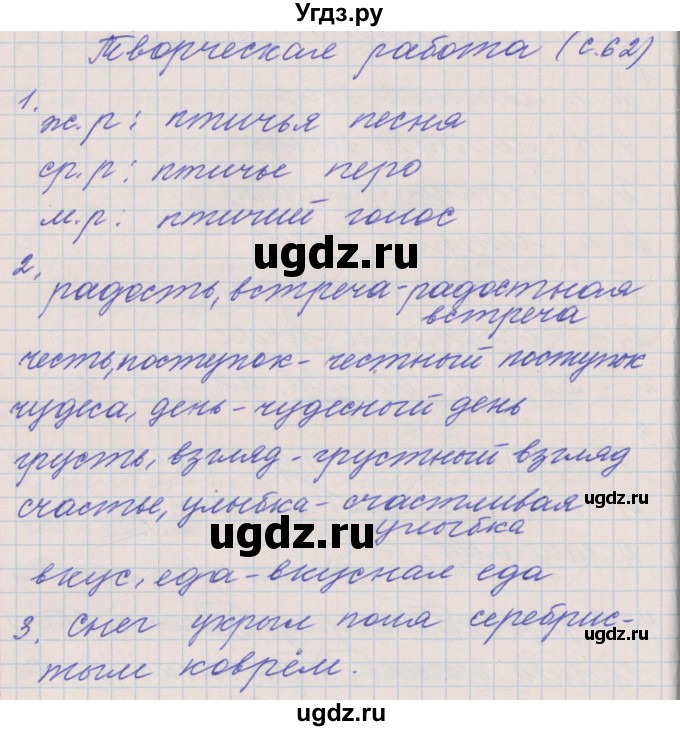 Угдз.ру
Творческая работа (с.62)
1.
ж.р: птичья песня
ср.р: птичье перо
м.р: птичий голос
ugdz.ru
2. радость, встреча - радостная
встреча
честь, поступок - честный поступок
чудеса, день - чудесный день
грусть, взгляд - грустный взгляд
счастье, улыбка - счастливая
ugdz.ru
ugdz.ru
улыбка
вкус, еда - вкусная еда
3. Снег укрыл поля серебрис-
ugdz.ru
тым ковром.
ugdz.ru